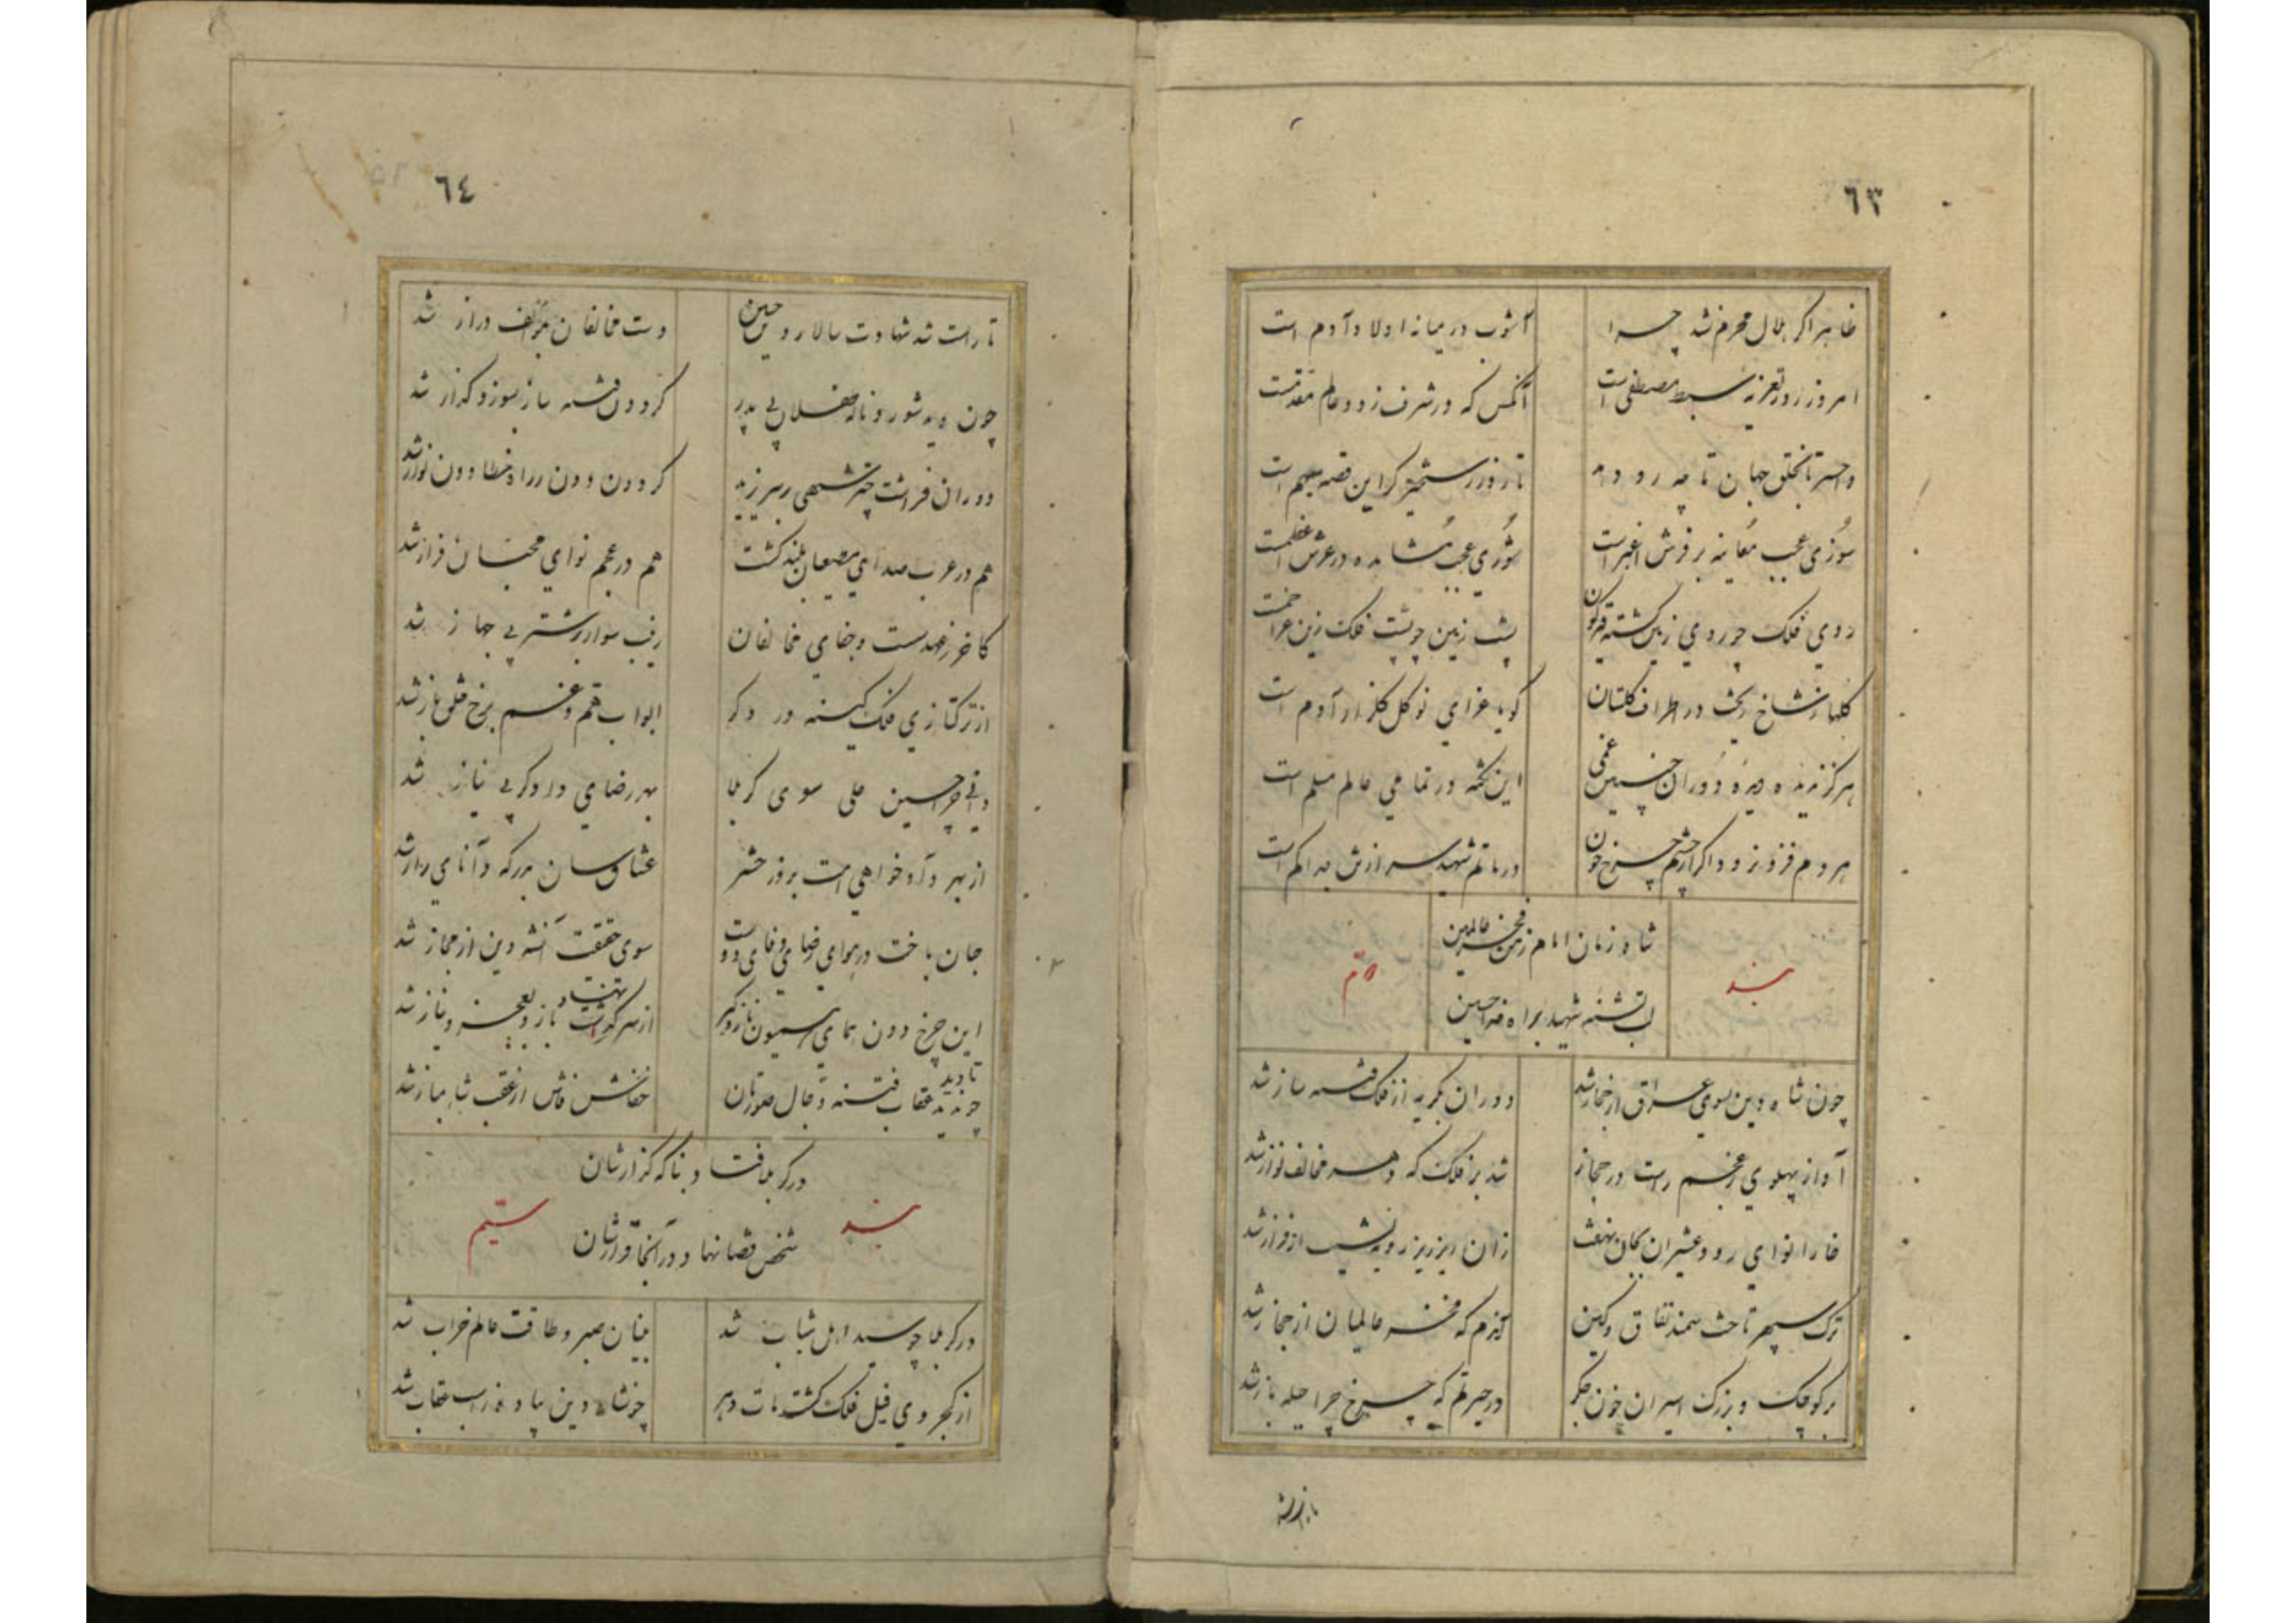 ٦٣
ظاهرا کر هلال محرم نشد چرا آشوب در میانه اولاد آدم است
امروز روز تعزیه سبط مصطفی است آنکس که در شرف ز دو عالم مقدمست
وا حسرتا بخلق جهان تا چه رو دهد تا روز رستخیز کر این قصه مبهم است
سوزی عجب معاینه بر فرش اغبر است شوری عجب مشاهده در عرش اعظمست
روی فلک چو روی زمین کشته قیرکون پشت زمین چو پشت فلک زین عزا خمست
کلها ز شاخ ریخت در اطراف کلستان کویا عزای نو کل کلزار آدم است
هرکز ندیده دیده دوران چنین غمی این نکته در تمامی عالم مسلم است
هر دم فزوز ود اکر از چشم چرخ خون در ماتم شهید سرافرازش بدا کم است
شاه زمان امام زمن فخر عالمین
بند دوم
لب تشنه شهید براه خدا حسین
چون شاه دین بسوی عراق از حجاز شد دوران بکریه از فلک فتنه ساز شد
آواز پهلوی عجم راست در حجاز شد بر فلک که دهر مخالف نواز شد
خارا نوای رود عشیران بکان نهفت زان ریز ریز رو به نشیب از فراز شد
ترک سپهر تاخت سمند نفاق و کین آندم که فخر عالمیان از حجاز شد
بر کوچک و بزرک اسیران خون جکر در حیرتم که چرخ چرا حیله باز شد
٦٤
تا راست شد شهادت سالار دین حسین دست مخالفان ز هر طرف دراز شد
چون دید شور و ناله طفلان بی پدر کردون فتنه ساز بسوز و کداز شد
دوران فراشت چتر شهی بر سر یزید کردون دون در راه خطا دون نواز شد
هم در عرب صدای مصیبت بلند کشت هم در عجم نوای محبان فراز شد
کاخر ز عهد سست و جفای مخالفان زینب سوار بر شتر بی جهاز شد
از ترکتازی فلک کینه ور دکر ابواب هم و غم برخ خلق باز شد
رفت آخر حسین علی سوی کربلا بهر رضای داور بی نیاز شد
از بهر داد خواهی امت بروز حشر عشاق سان بدرکه دانای راز شد
جان باخت در هوای رضای وفای دوست سوی حقیقت آن شه دین از مجاز شد
این چرخ دون بماتمیون ناز و کر از سر کذشت باز و بعجز و نیاز شد
تا دید چو ندید عقاب فتنه دجال صورتان خفاش فاش از عقب شاهباز شد
در کربلا فتاد بناکه کزارشان
بند سیم
شخص قضا نهاد در آنجا قرارشان
در کربلا چو سید اهل شباب شد بنیان صبر و طاقت عالم خراب شد
از کجروی فیل فلک کشت مات دهر چون شاه دین پیاده ز اسب عقاب شد